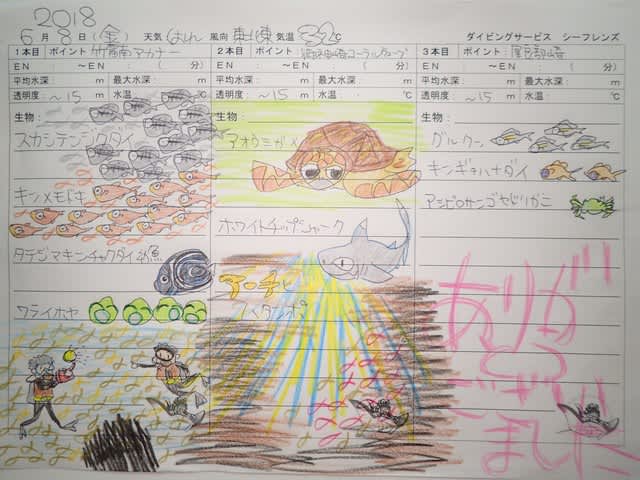 2018
6月8日(金) 天気 はれ 風向 東 気温 32℃ ダイビングサービス シーフレンズ
1本目 ポイント 竹富南アカナー
EN : ～EN : ( 分)
平均水深: m 最大水深: m
透明度: ～15 m 水温: ℃
生物:
スカシテンジクダイ
キンメモドキ
タテジマキンチャクダイ幼魚
ワライホヤ
2本目 ポイント
EN : ～EN : ( 分)
平均水深: m 最大水深: m
透明度: ～15 m 水温: ℃
生物:
アオウミガメ
ホワイトチップシャーク
アーチと
ハタンポ
3本目 ポイント 崎
EN : ～EN : ( 分)
平均水深: m 最大水深: m
透明度: ～15 m 水温: ℃
生物:
グルクン
キンギョハナダイ
アシビロサンゴヤドリガニ
ありが
とう
ござい
ました